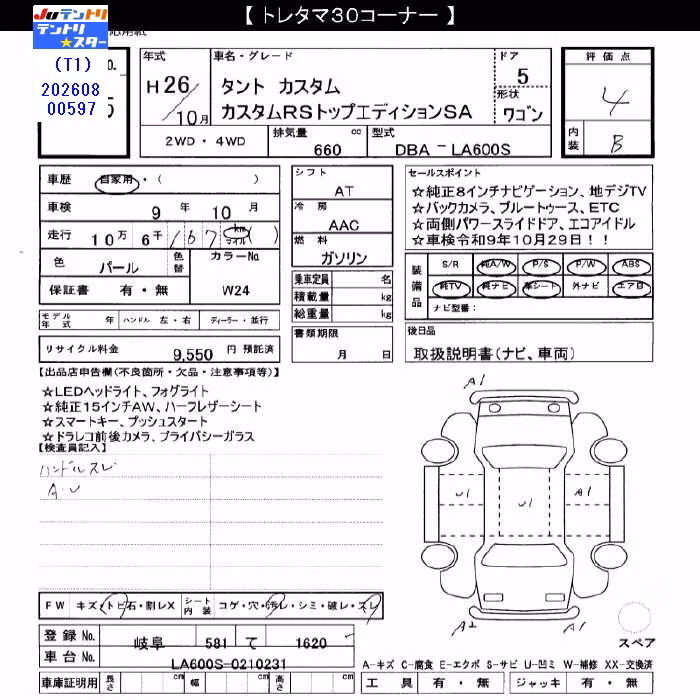 【 トレタマ３０コーナー 】
Juテントリ
テントリ★スター
(T1)
202608
00597
年式
H26/10月
車名・グレード
タント カスタム
カスタムRSトップエディションSA
ドア
5
形状
ワゴン
評価点
4
内装
B
2WD・4WD
排気量 cc
660
型式
DBA － LA600S
車歴
自家用・( )
車検
9 年 10 月
走行
10万 6千 167 km マイル ( )
色
パール
色替
カラーNo.
W24
保証書
有・無
シフト
AT
冷房
AAC
燃料
ガソリン
乗車定員 名
積載量 kg
総重量 kg
セールスポイント
☆純正8インチナビゲーション、地デジTV
☆バックカメラ、ブルートゥース、ETC
☆両側パワースライドドア、エコアイドル
☆車検令和9年10月29日！！
装備品
S/R 純A/W P/S P/W ABS
純TV 純ナビ 革シート 外ナビ エアB
ナビ型番：
モデル年式 年 ハンドル 左・右 ディーラー・並行
書類期限
月 日
後日品
取扱説明書(ナビ、車両)
リサイクル料金 9,550 円 預託済
【出品店申告欄(不良箇所・欠品・注意事項等)】
☆LEDヘッドライト、フォグライト
☆純正15インチAW、ハーフレザーシート
☆スマートキー、プッシュスタート
☆ドラレコ前後カメラ、プライバシーガラス
【検査員記入】
ハンドルスレ
A・U
A1
A1
U1
U1
A1
A2
A1
スペア
FW キズ・トビ石・割レX
シート内装 コゲ・穴・汚レ・シミ・破レ・スレ
登録No. 岐阜 581 て 1620
車台No. LA600S-0210231
A-キズ C-腐食 E-エクボ S-サビ U-凹ミ W-補修 XX-交換済
車庫証明用 長さ cm 幅 cm 高さ cm
工具 有・無 ジャッキ 有・無